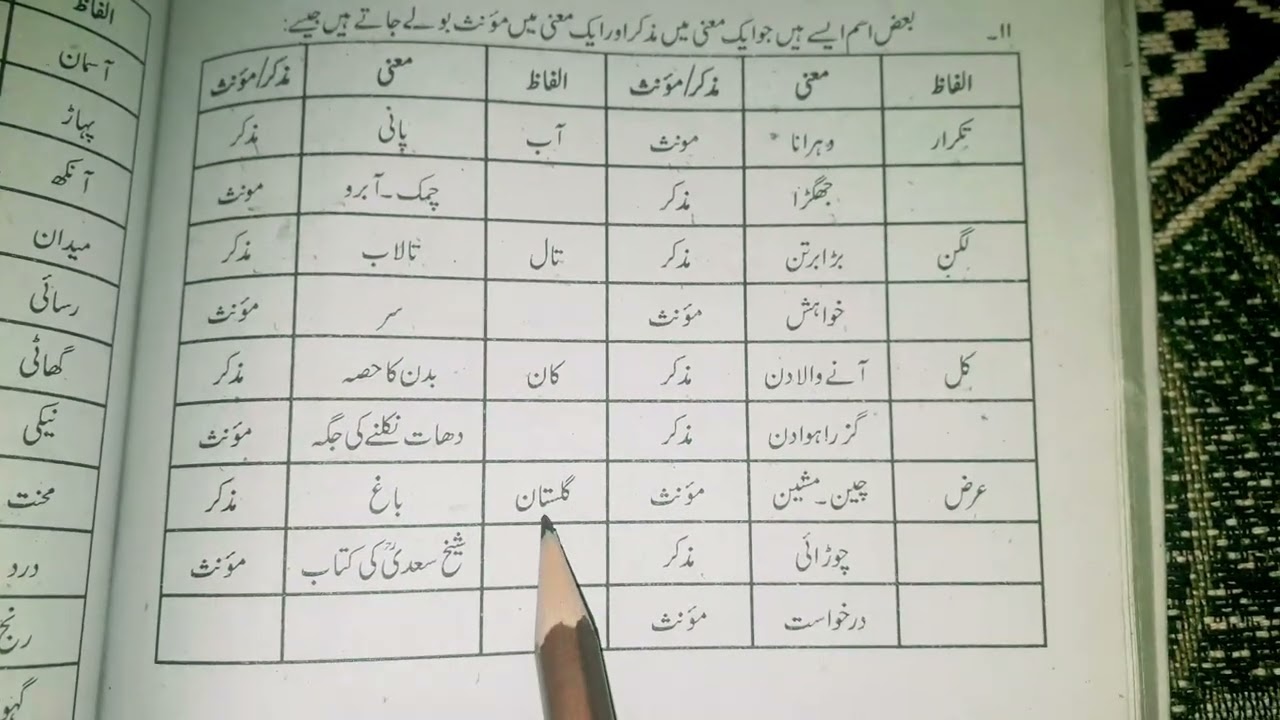 ۱۱۔ بعض اسم ایسے ہیں جو ایک معنی میں مذکر اور ایک معنی میں مؤنث بولے جاتے ہیں جیسے:
الفاظ معنی مذکر/مؤنث الفاظ معنی مذکر/مؤنث
تکرار وہرانا مونث آب پانی مذکر
جھگڑا مذکر چمک۔آبرو مونث
لگن بڑا برتن مذکر تال تالاب مذکر
خواہش مؤنث سر مؤنث
کل آنے والا دن مذکر کان بدن کا حصہ مذکر
گزرا ہوا دن مذکر دھات نکلنے کی جگہ مؤنث
عرض چین۔مشین مؤنث گلستان باغ مذکر
چوڑائی مذکر شیخ سعدیؒ کی کتاب مؤنث
درخواست مؤنث
الفاظ
آسمان
پہاڑ
آنکھ
میدان
رسائی
گھاٹی
نیکی
محنت
درد
رنج